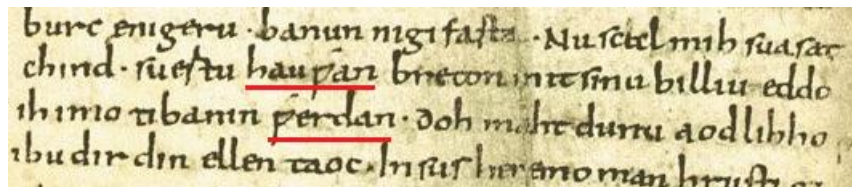 burc enigeru · banun ni gi fasta · Nu scel mih suasat
chind · suertu hauƿan breton mit sinu billiu eddo
ih imo ti banin ƿerdan · doh maht du nu aodlihho
ibu dir din ellen taoc · In sus heremo man hrusti gi